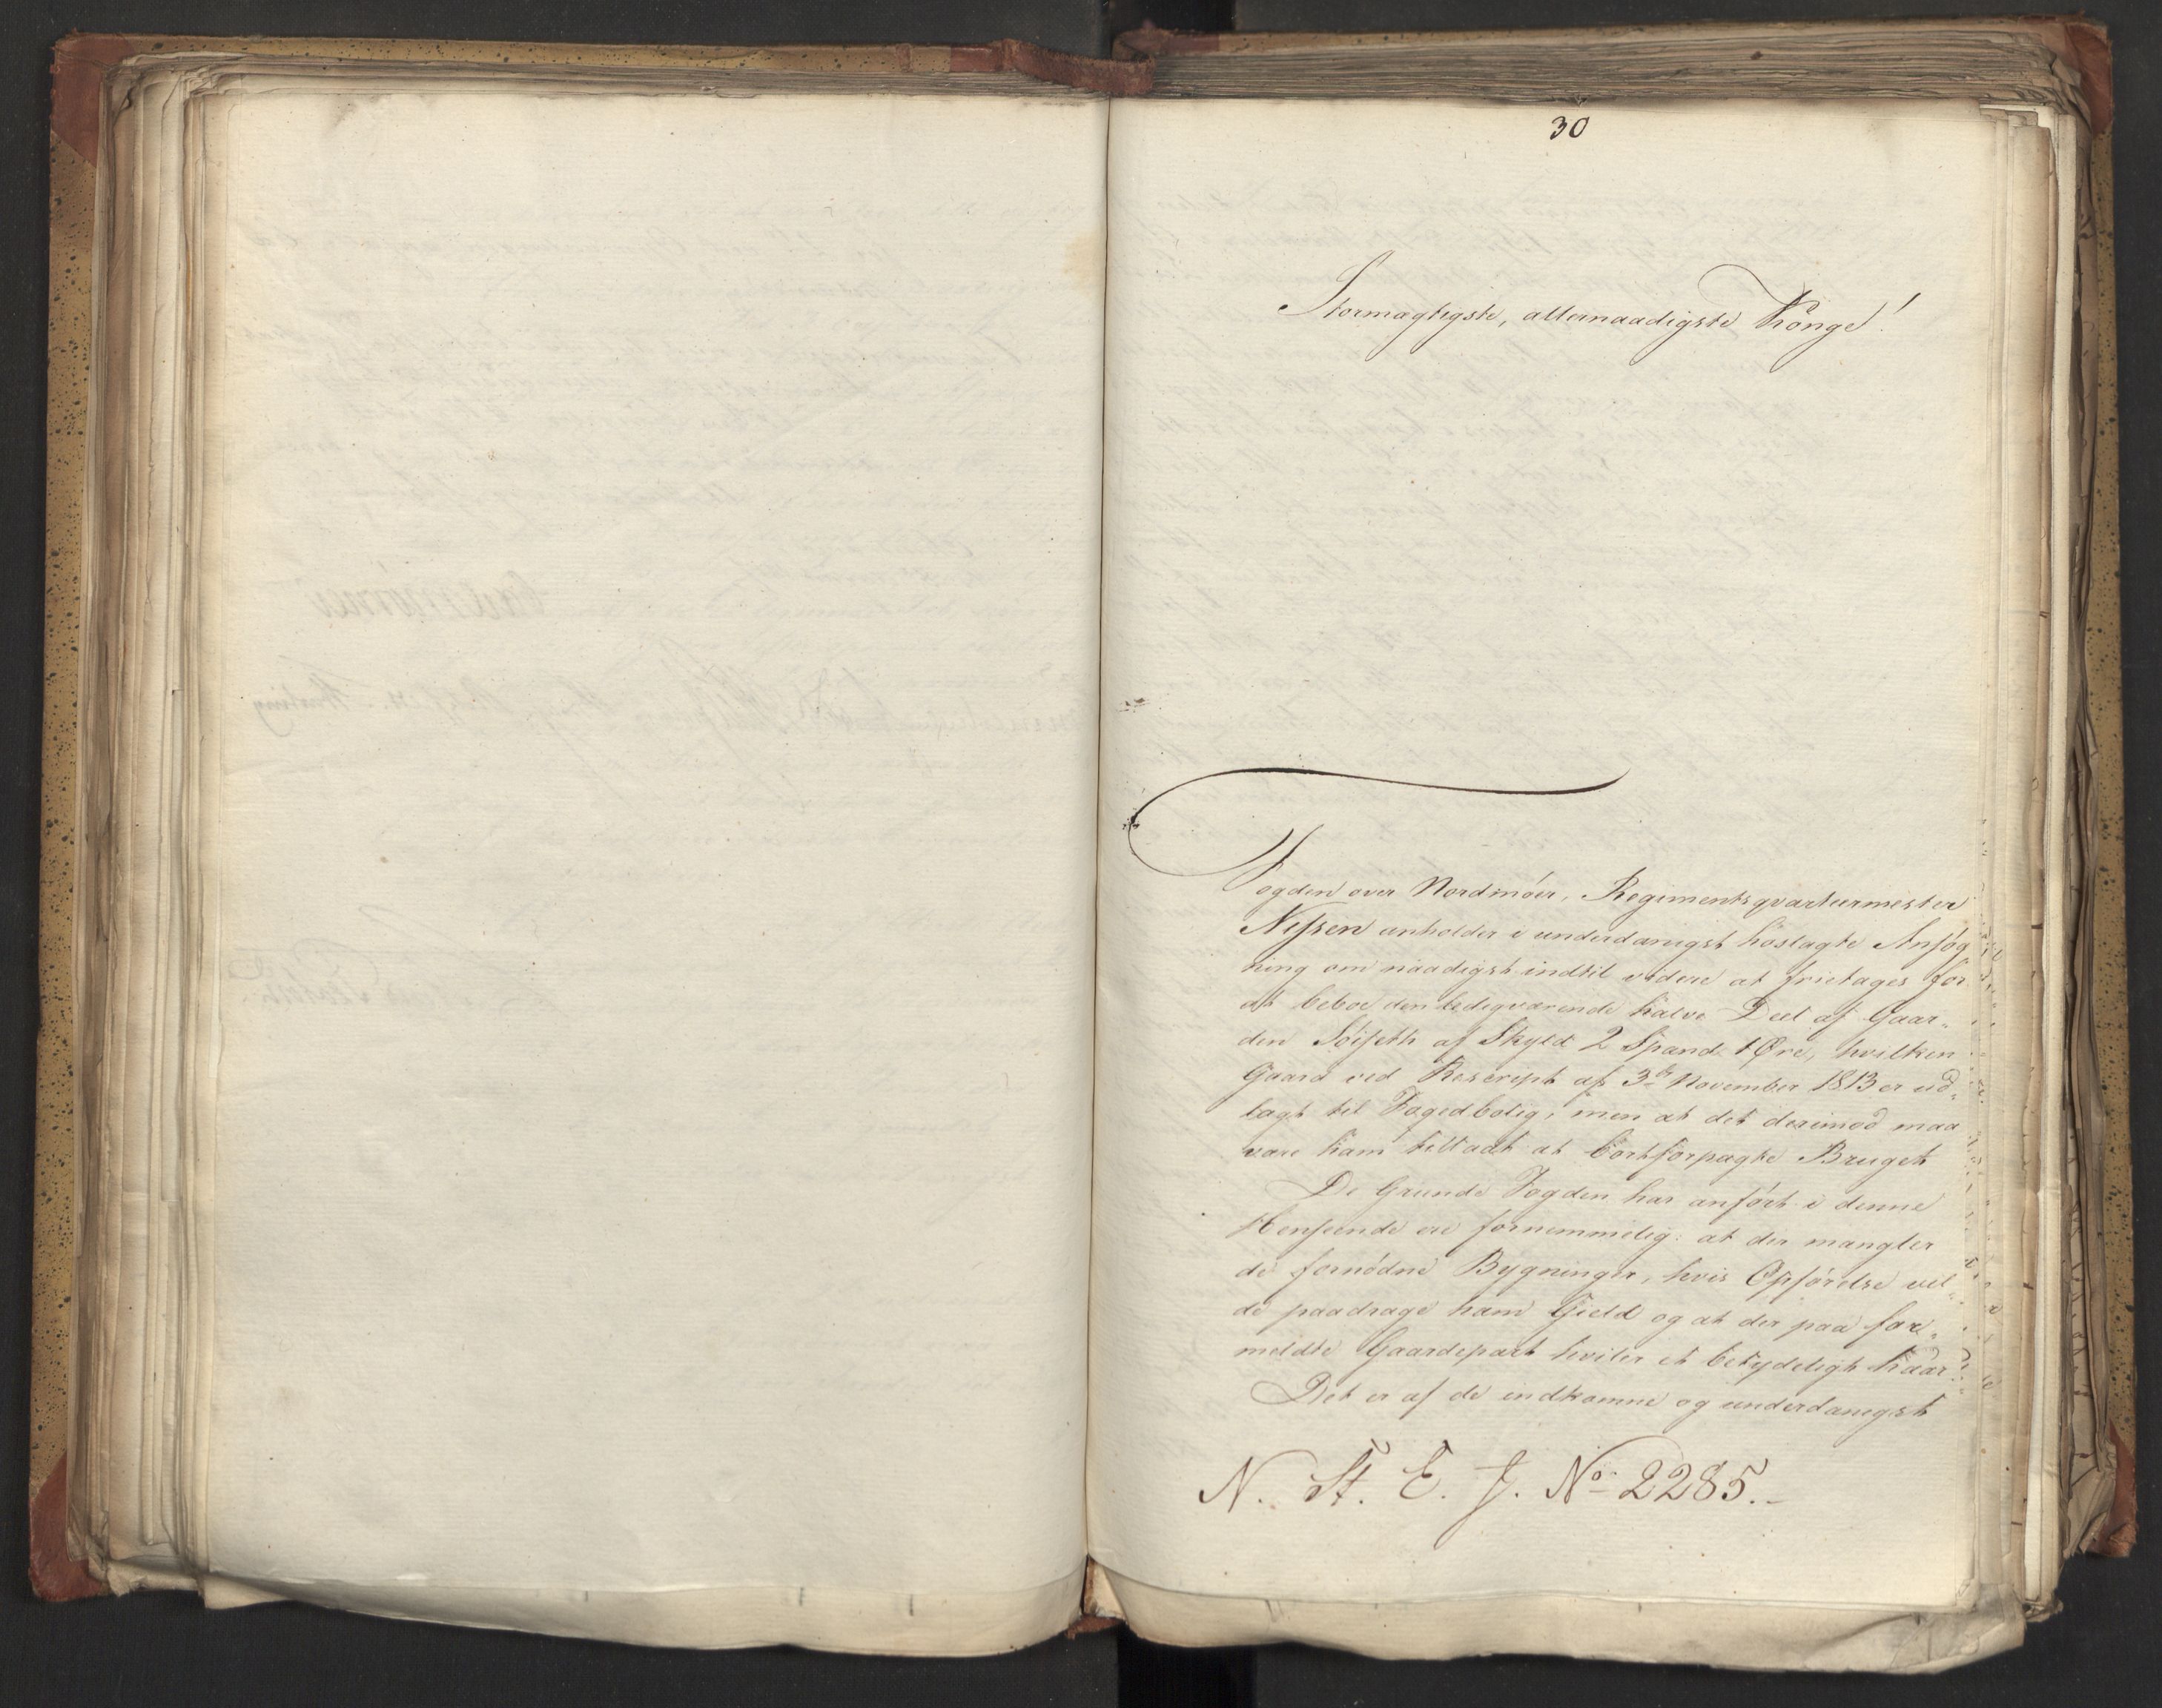 30
Stormægtigste, allernaadigste Konge!
Fogden over Nordmöer, Regimentsqvarteermester
Nissen anholder i underdanigst hoslagte Ansög
ning om naadigst indtil videre at frietages for
at beboe den ledigværende halve Deel af Gaar„
den Söiseth af Skyld 2 Spand 1 Øre, hvilken
Gaard ved Rescript af 3die November 1813 er ud„
lagt til Fogedbolig, men at det derimod maa
være ham tilladt at bortforpagte Bruget
De Grunde Fogden har anført i denne
Henseende ere fornemmelig: at der mangler
de fornödne Bygninger, hvis Opförelse vil„
de paadrage ham Gield og at der paa for„
meldte Gaardepart hviler et betydeligt Kaar.
Det er af de indkomne og underdanigst
N. St. E. J. No 2285.